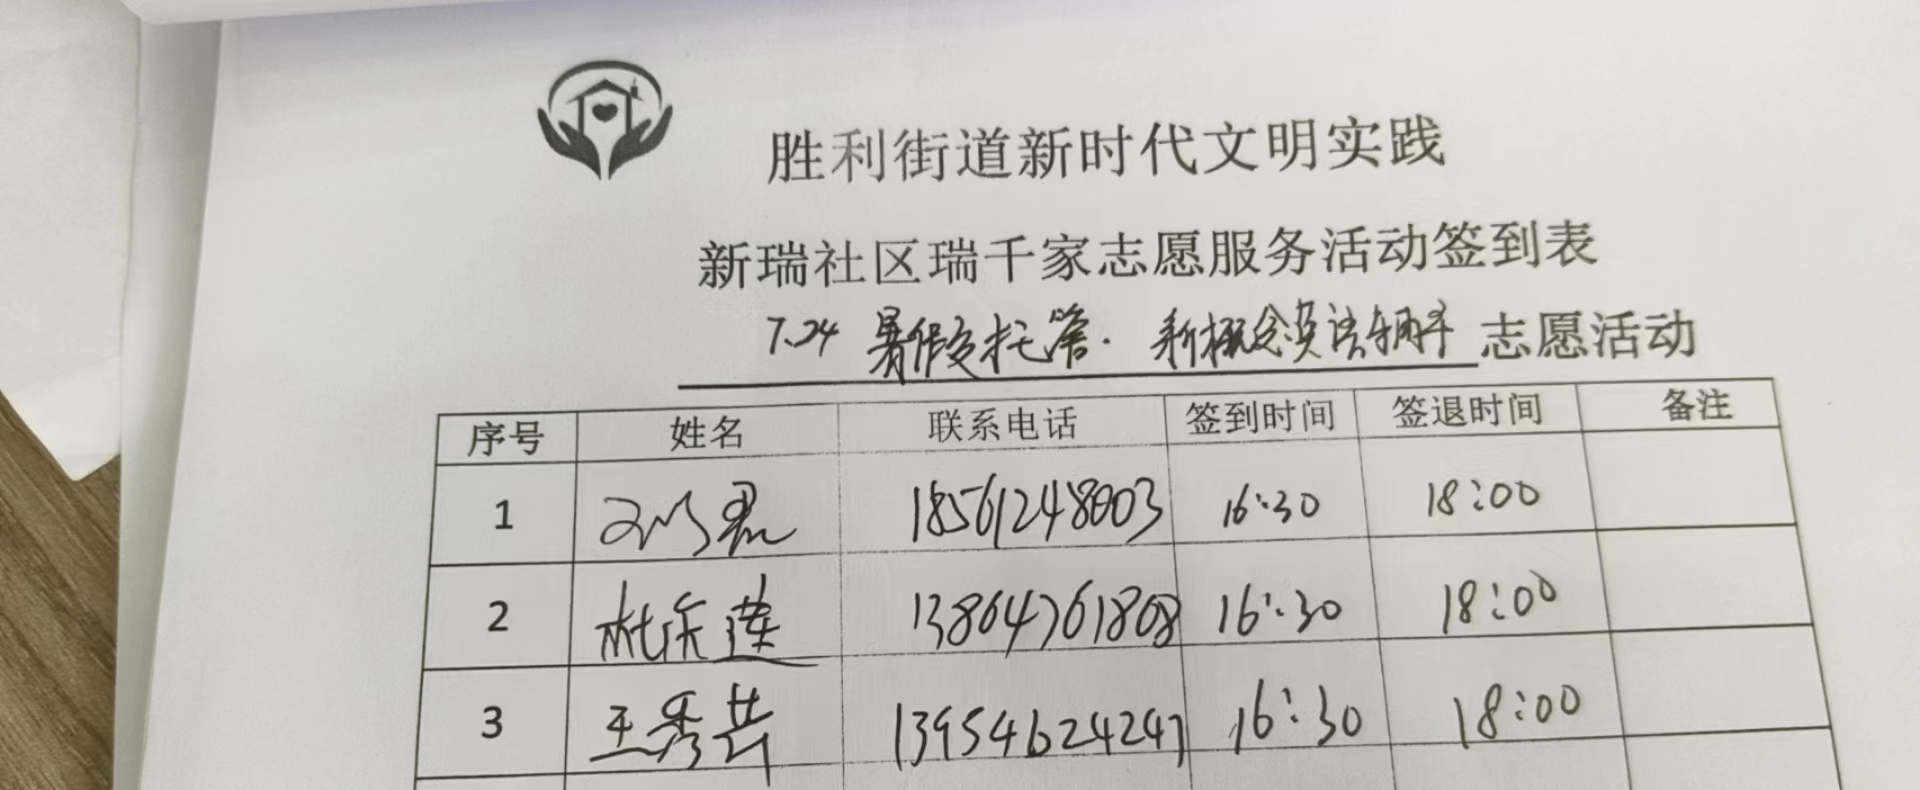 胜利街道新时代文明实践
新瑞社区瑞千家志愿服务活动签到表
7.24 暑假托管. 新概念英语辅导 志愿活动
序号 姓名 联系电话 签到时间 签退时间 备注
1 18561248003 16:30 18:00
2 杜乐莲 13864761808 16:30 18:00
3 王秀芬 13954624247 16:30 18:00